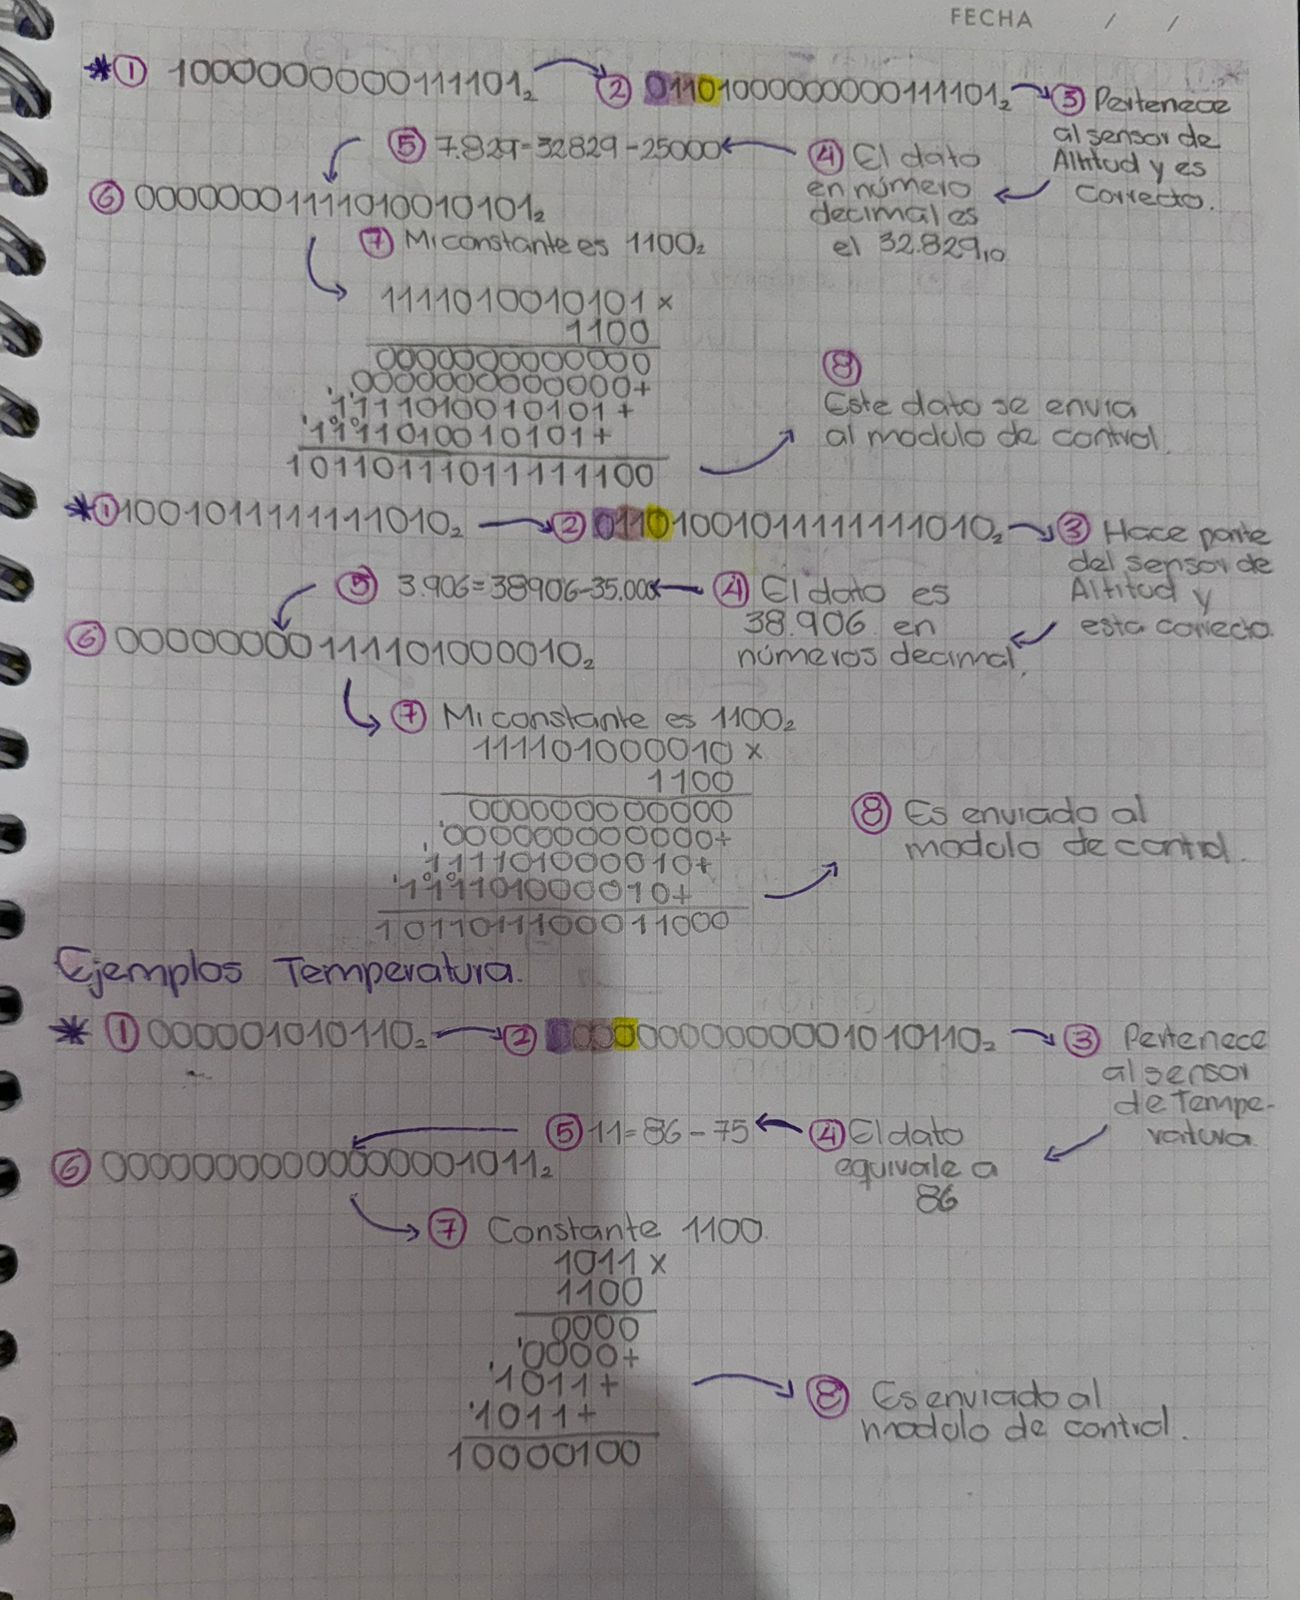 FECHA / /
* ① 1000000000111101₂ ② 01101000000000111101₂ ③ Pertenece
al sensor de
Altitud y es
correcto.
④ El dato
en número
decimal es
el 32.829₁₀
⑤ 7.829=32829-25000
⑥ 00000001111010010101₂
⑦ Mi constante es 1100₂
1111010010101 x
1100
0000000000000
0000000000000+
1111010010101+
1111010010101+
10110111011111100
⑧
Este dato se envia
al modulo de control.
* ① 1001011111111010₂ ② 01101001011111111010₂ ③ Hace parte
del sensor de
Altitud y
esta correcto.
④ El dato es
38.906 en
números decimal.
⑤ 3.906=38906-35.000
⑥ 00000000111101000010₂
⑦ Mi constante es 1100₂
111101000010 x
1100
000000000000
000000000000+
111101000010+
111101000010+
1011011100011000
⑧ Es enviado al
modulo de control.
Ejemplos Temperatura.
* ① 000001010110₂ ② 00000000000001010110₂ ③ Pertenece
al sensor
de Tempe-
ratura
④ El dato
equivale a
86
⑤ 11=86-75
⑥ 00000000000000001011₂
⑦ Constante 1100
1011 x
1100
0000
0000+
1011+
1011+
10000100
⑧ Es enviado al
modulo de control.